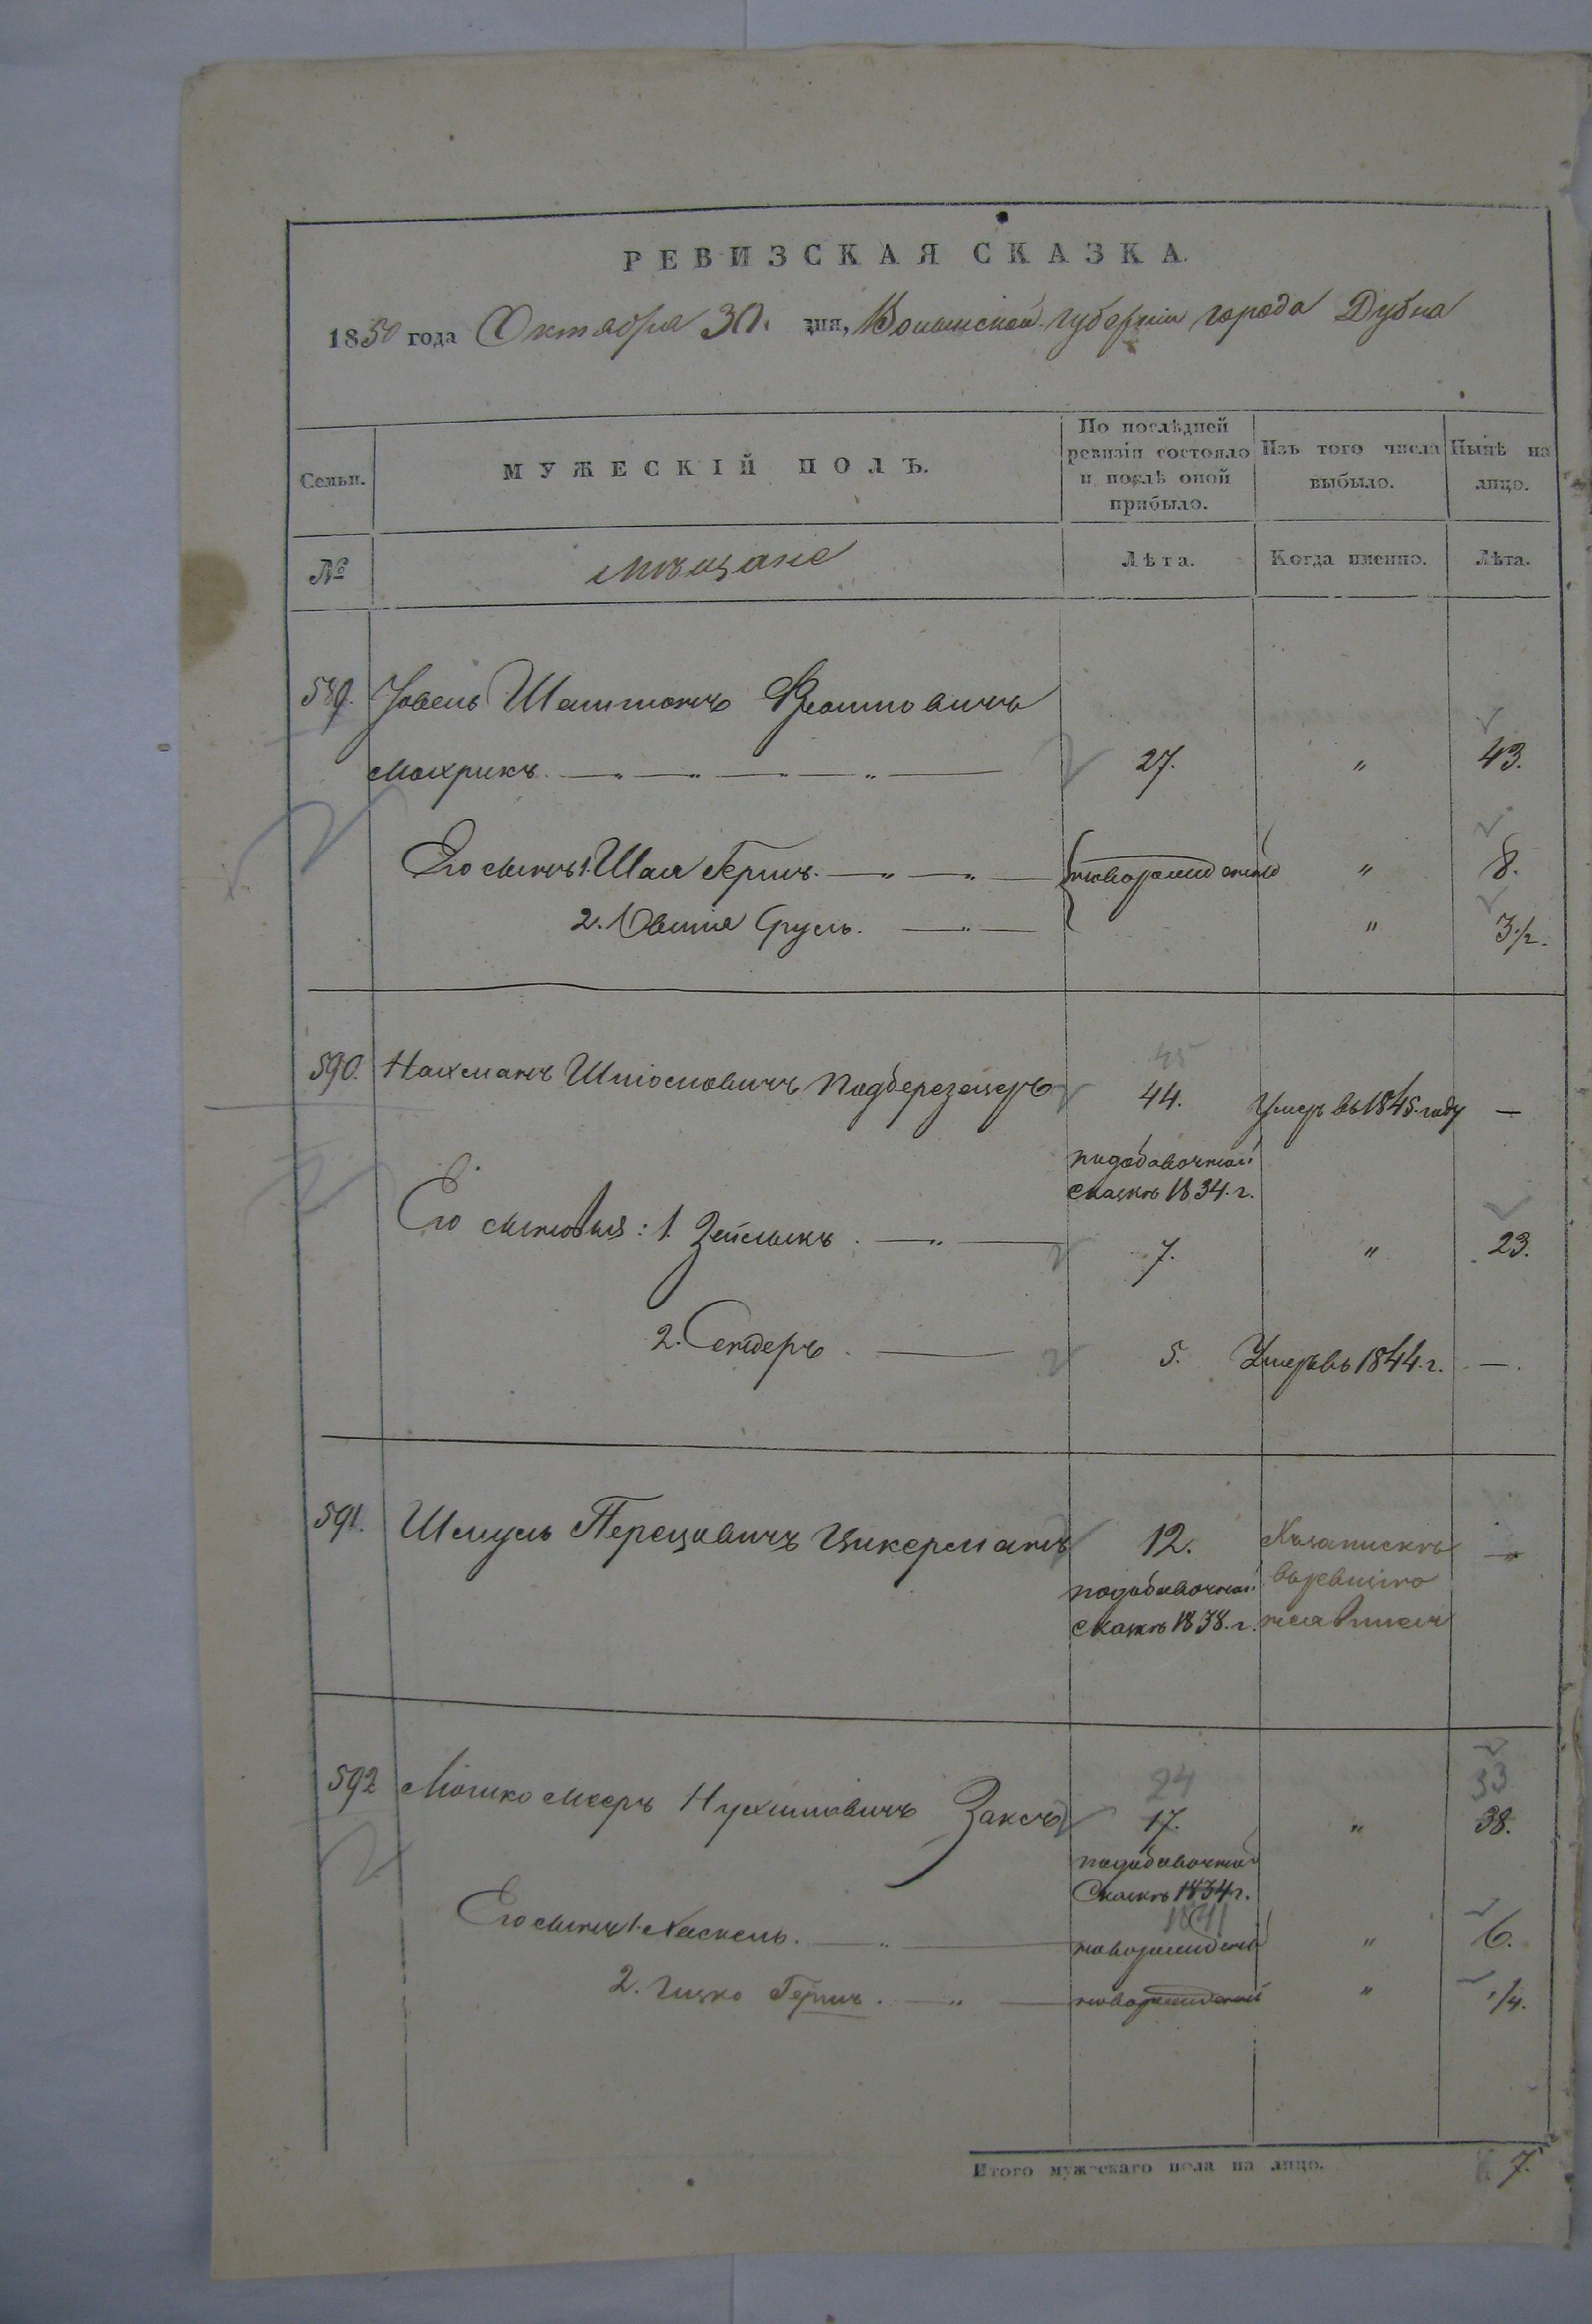 РЕВИЗСКАЯ СКАЗКА.
1850 года Октября 30. дня, Волынской губернiи города Дубна
Семьи. МУЖЕСКІЙ ПОЛЪ. По послѣдней ревизіи состояло и послѣ оной прибыло. Изъ того числа выбыло. Нынѣ на лицо.
№ Мѣщане Лѣта. Когда именно. Лѣта.
589. Іовель
Махрикъ. 27. " 43.
Его сынъ 1. Шая Гершъ. новорожденные " 8.
2. Сруль. " 3 1/2.
590. Нахманъ Подберезецеръ 44. Умеръ въ 1845. году —
45
подобавочной
сказкѣ 1834. г.
Его сыновья: 1. Зейликъ. 7. " 23.
2. Сендеръ. 5. Умеръ въ 1844. г. —.
591. Шмуль Перецовичъ Цикерманъ 12. —
подобавочной
сказкѣ 1838. г.
592 Мошко Мееръ Нухимовичъ Заксъ 17. " 38.
24 33
подобавочной
Сказкѣ 1834 г.
1841
Его сынъ 1. Хаскель. новорожденый " 6.
2. Ицко Гершъ. новорожденый " 1/4.
Итого мужескаго пола на лицо. 7.